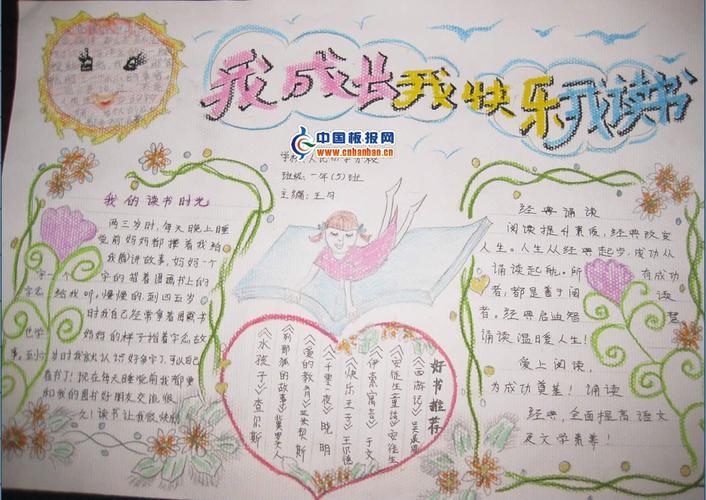 我成长我快乐我读书
中国板报网
www.cnbanbao.cn
班级:一年(5)班
主编:王月
我的读书时光
两三岁时,每天晚上睡
觉前妈妈都搂着我给
我讲故事,妈妈一个
字一个字的指着图画书上的
字念给我听。慢慢的到四五岁
时我自己经常拿着图画书
也学妈妈的样子指着字念故
事。到六岁时我就认识好多字了,可以自己
看书了!现在每天睡觉前我都要
和我的图书好朋友交流很
久!读书让我很快乐!
好书推荐
《西游记》吴承恩
《安徒生童话》安徒生
《伊索寓言》于文
《快乐王子》王尔德
《千零一夜》晓明
《爱的教育》亚米契斯
《列那狐的故事》
《水孩子》查尔斯
经典诵读
阅读提升素质,经典改变
人生。人生从经典起步,成功从
诵读起航。所有成功
者,都是善于阅读
者。经典启迪智慧
诵读温暖人生!
爱上阅读,
为成功奠基!诵读
经典,全面提高语文
及文学素养!